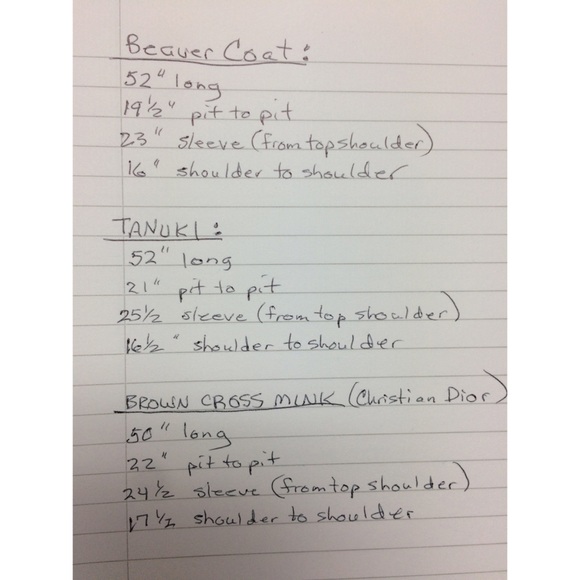 Beaver Coat:
52" long
19 1/2" pit to pit
23" sleeve (from top shoulder)
16" shoulder to shoulder
TANUKI:
52" long
21" pit to pit
25 1/2 sleeve (from top shoulder)
16 1/2" shoulder to shoulder
BROWN CROSS MINK (Christian Dior)
50" long
22" pit to pit
24 1/2 sleeve (from top shoulder)
17 1/2 shoulder to shoulder